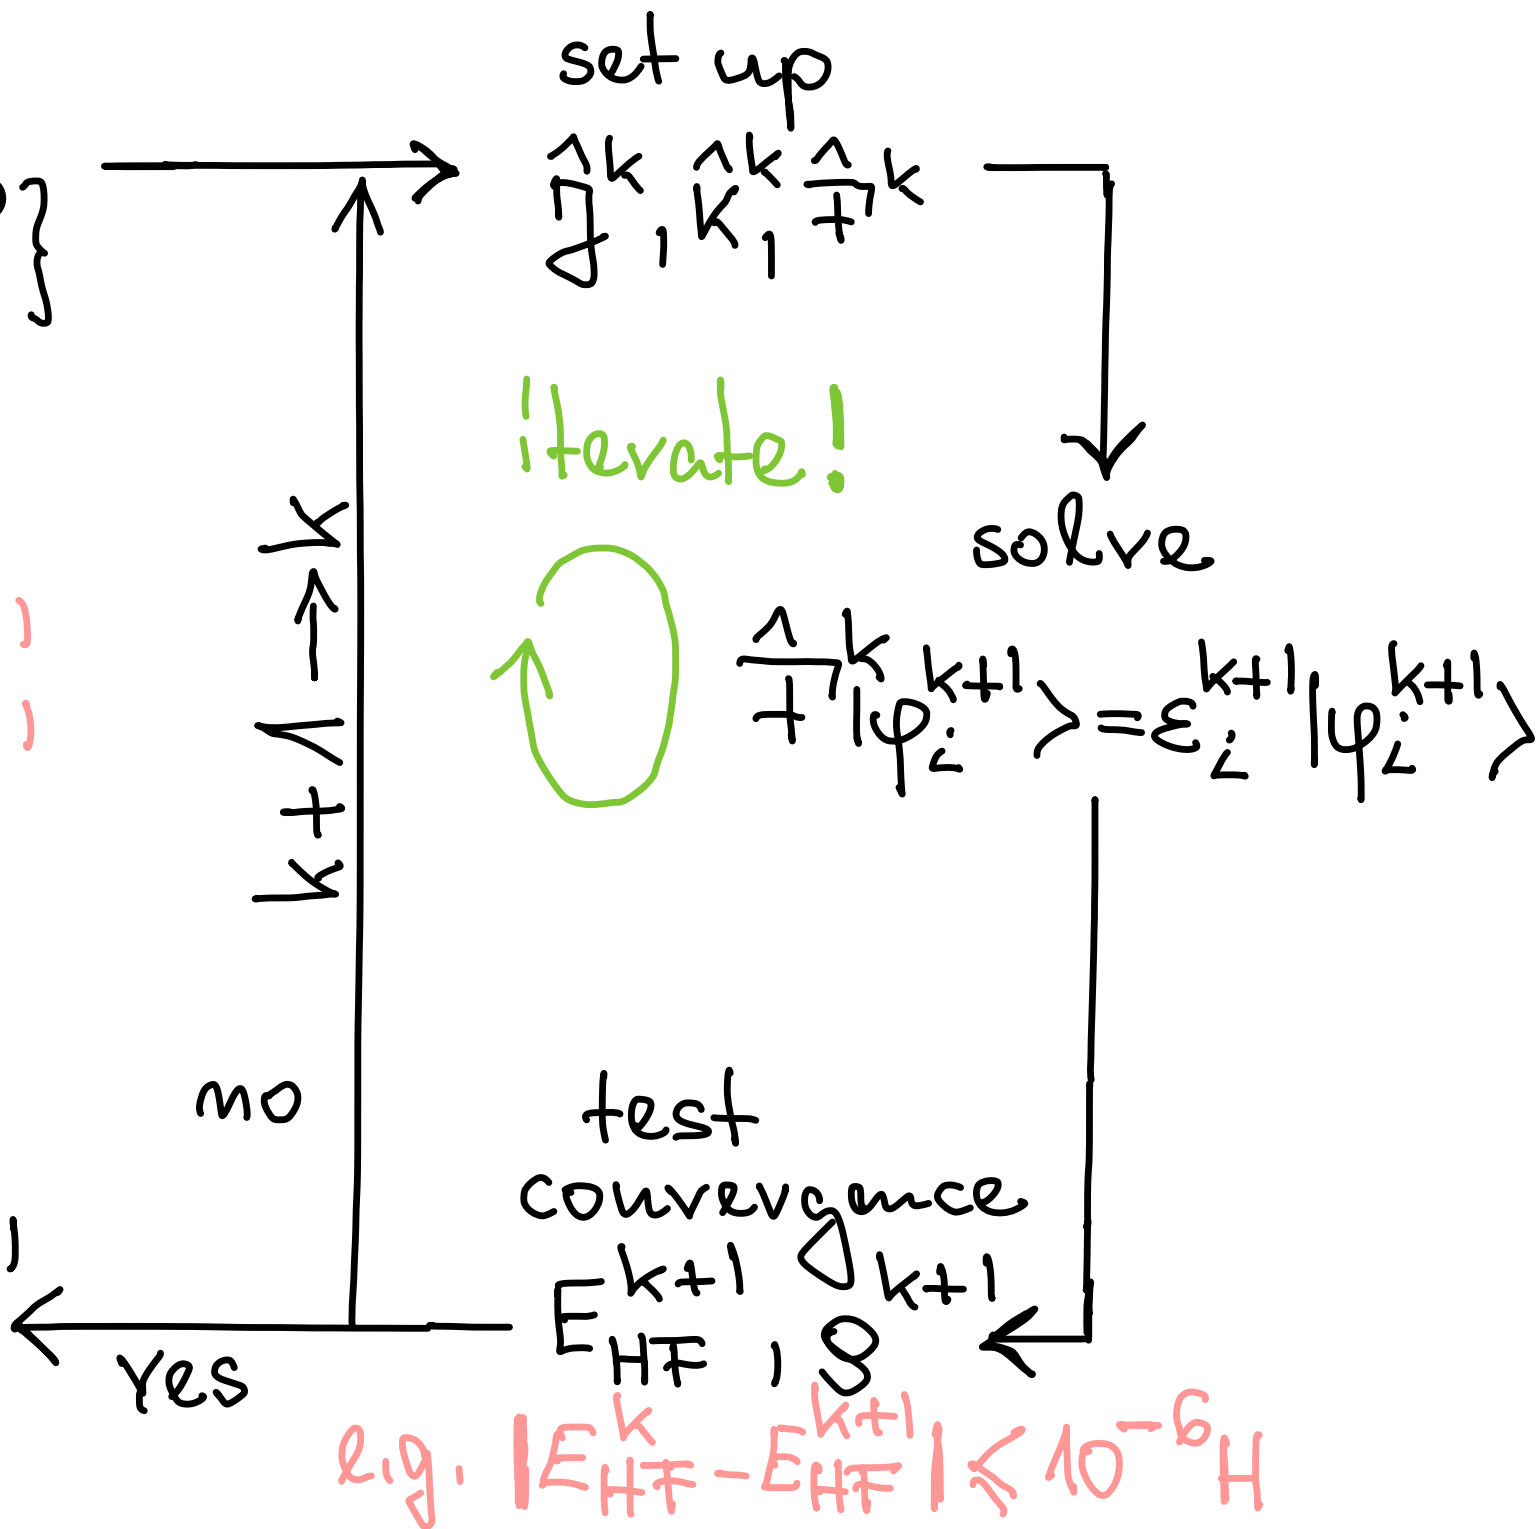 set up
}
Ĵᵏ, K̂ᵏ, F̂ᵏ
iterate!
solve
F̂ᵏ|φᵢᵏ⁺¹⟩ = εᵢᵏ⁺¹|φᵢᵏ⁺¹⟩
k+1 → k
no
test
convergance
E_HF^{k+1}, ϱ^{k+1}
yes
e.g. |E_HF^k - E_HF^{k+1}| ≤ 10⁻⁶ H